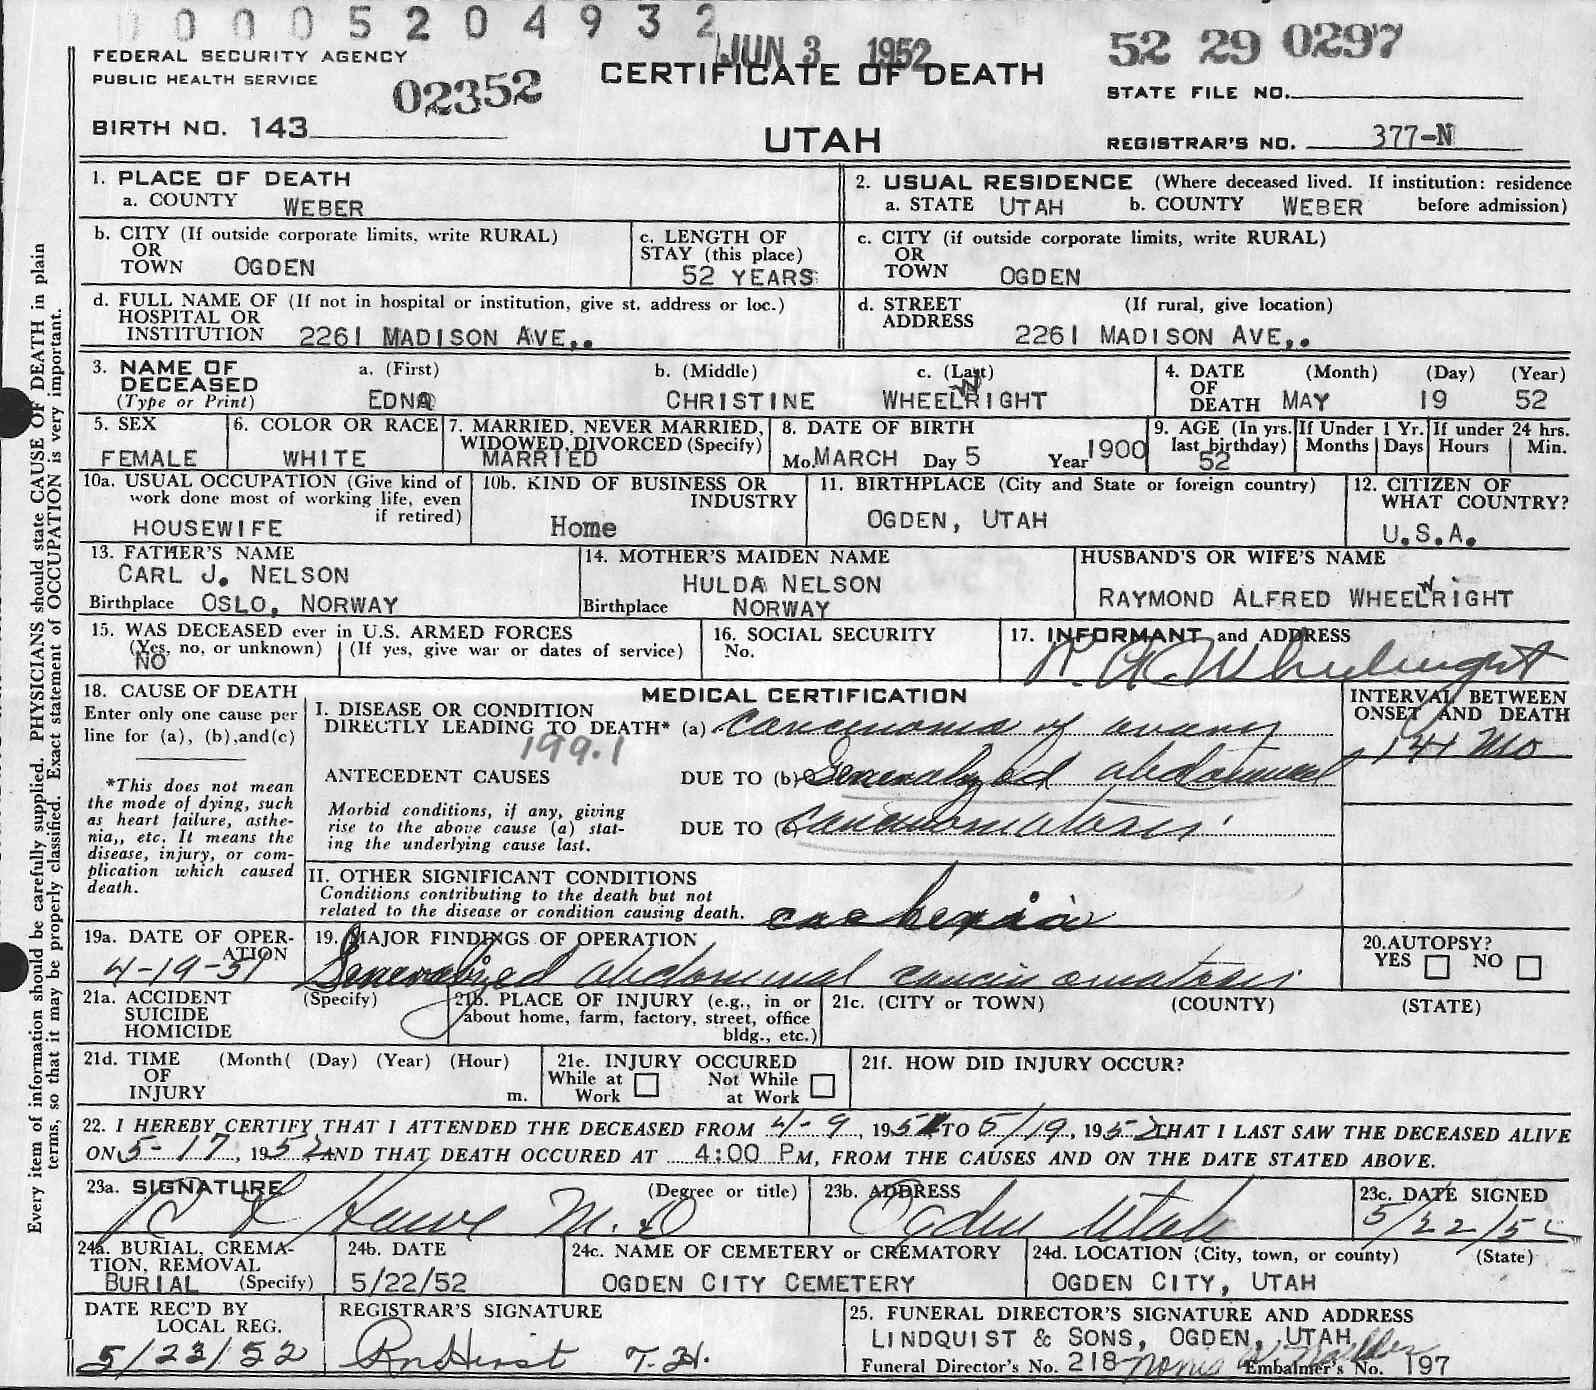 0 0 0 5 2 0 4 9 3 2
JUN 3 1952
52 29 0297
FEDERAL SECURITY AGENCY
PUBLIC HEALTH SERVICE
02352
CERTIFICATE OF DEATH
STATE FILE NO.
BIRTH NO. 143
UTAH
REGISTRAR'S NO. 377-N
Every item of information should be carefully supplied. PHYSICIANS should state CAUSE OF DEATH in plain
terms, so that it may be properly classified. Exact statement of OCCUPATION is very important.
1. PLACE OF DEATH
a. COUNTY WEBER
2. USUAL RESIDENCE (Where deceased lived. If institution: residence
a. STATE UTAH b. COUNTY WEBER before admission)
b. CITY (If outside corporate limits, write RURAL)
OR
TOWN OGDEN
c. LENGTH OF
STAY (this place)
52 YEARS
c. CITY (if outside corporate limits, write RURAL)
OR
TOWN OGDEN
d. FULL NAME OF (If not in hospital or institution, give st. address or loc.)
HOSPITAL OR
INSTITUTION 2261 MADISON AVE,.
d. STREET (If rural, give location)
ADDRESS 2261 MADISON AVE,.
3. NAME OF DECEASED
(Type or Print)
a. (First) b. (Middle) c. (Last)
EDNA CHRISTINE WHEELWRIGHT
4. DATE OF DEATH (Month) (Day) (Year)
MAY 19 52
5. SEX
FEMALE
6. COLOR OR RACE
WHITE
7. MARRIED, NEVER MARRIED,
WIDOWED, DIVORCED (Specify)
MARRIED
8. DATE OF BIRTH
Mo. MARCH Day 5 Year 1900
9. AGE (In yrs.
last birthday)
52
If Under 1 Yr.
Months Days
If under 24 hrs.
Hours Min.
10a. USUAL OCCUPATION (Give kind of
work done most of working life, even
if retired)
HOUSEWIFE
10b. KIND OF BUSINESS OR
INDUSTRY
Home
11. BIRTHPLACE (City and State or foreign country)
OGDEN, UTAH
12. CITIZEN OF
WHAT COUNTRY?
U.S.A.
13. FATHER'S NAME
CARL J. NELSON
Birthplace OSLO, NORWAY
14. MOTHER'S MAIDEN NAME
HULDA NELSON
Birthplace NORWAY
HUSBAND'S OR WIFE'S NAME
RAYMOND ALFRED WHEELWRIGHT
15. WAS DECEASED ever in U.S. ARMED FORCES
(Yes, no, or unknown) (If yes, give war or dates of service)
NO
16. SOCIAL SECURITY
No.
17. INFORMANT and ADDRESS
R. A. Wheelwright
18. CAUSE OF DEATH
Enter only one cause per
line for (a), (b), and(c)
*This does not mean
the mode of dying, such
as heart failure, asthe-
nia,, etc. It means the
disease, injury, or com-
plication which caused
death.
MEDICAL CERTIFICATION
INTERVAL BETWEEN
ONSET AND DEATH
I. DISEASE OR CONDITION
DIRECTLY LEADING TO DEATH* (a) carcinoma of ovary
14 Mo
199.1
ANTECEDENT CAUSES DUE TO (b) Generalized abdominal
Morbid conditions, if any, giving
rise to the above cause (a) stat-
ing the underlying cause last.
DUE TO (c) carcinomatosis
II. OTHER SIGNIFICANT CONDITIONS
Conditions contributing to the death but not
related to the disease or condition causing death. cachexia
19a. DATE OF OPER-
ATION
4-19-51
19. MAJOR FINDINGS OF OPERATION
Generalized abdominal carcinomatosis
20. AUTOPSY?
YES NO
21a. ACCIDENT
SUICIDE
HOMICIDE
(Specify)
21b. PLACE OF INJURY (e.g., in or
about home, farm, factory, street, office
bldg., etc.)
21c. (CITY or TOWN) (COUNTY) (STATE)
21d. TIME (Month( (Day) (Year) (Hour)
OF
INJURY m.
21e. INJURY OCCURED
While at Work
Not While at Work
21f. HOW DID INJURY OCCUR?
22. I HEREBY CERTIFY THAT I ATTENDED THE DECEASED FROM 4-9, 1951 TO 5/19, 1952 THAT I LAST SAW THE DECEASED ALIVE
ON 5-17, 1952 AND THAT DEATH OCCURED AT 4:00 PM, FROM THE CAUSES AND ON THE DATE STATED ABOVE.
23a. SIGNATURE (Degree or title)
M.D
23b. ADDRESS
Ogden Utah
23c. DATE SIGNED
5/22/52
24a. BURIAL, CREMA-
TION, REMOVAL
BURIAL (Specify)
24b. DATE
5/22/52
24c. NAME OF CEMETERY or CREMATORY
OGDEN CITY CEMETERY
24d. LOCATION (City, town, or county) (State)
OGDEN CITY, UTAH
DATE REC'D BY
LOCAL REG.
5/23/52
REGISTRAR'S SIGNATURE
T.H.
25. FUNERAL DIRECTOR'S SIGNATURE AND ADDRESS
LINDQUIST & SONS, OGDEN, UTAH
Funeral Director's No. 218 Embalmer's No. 197